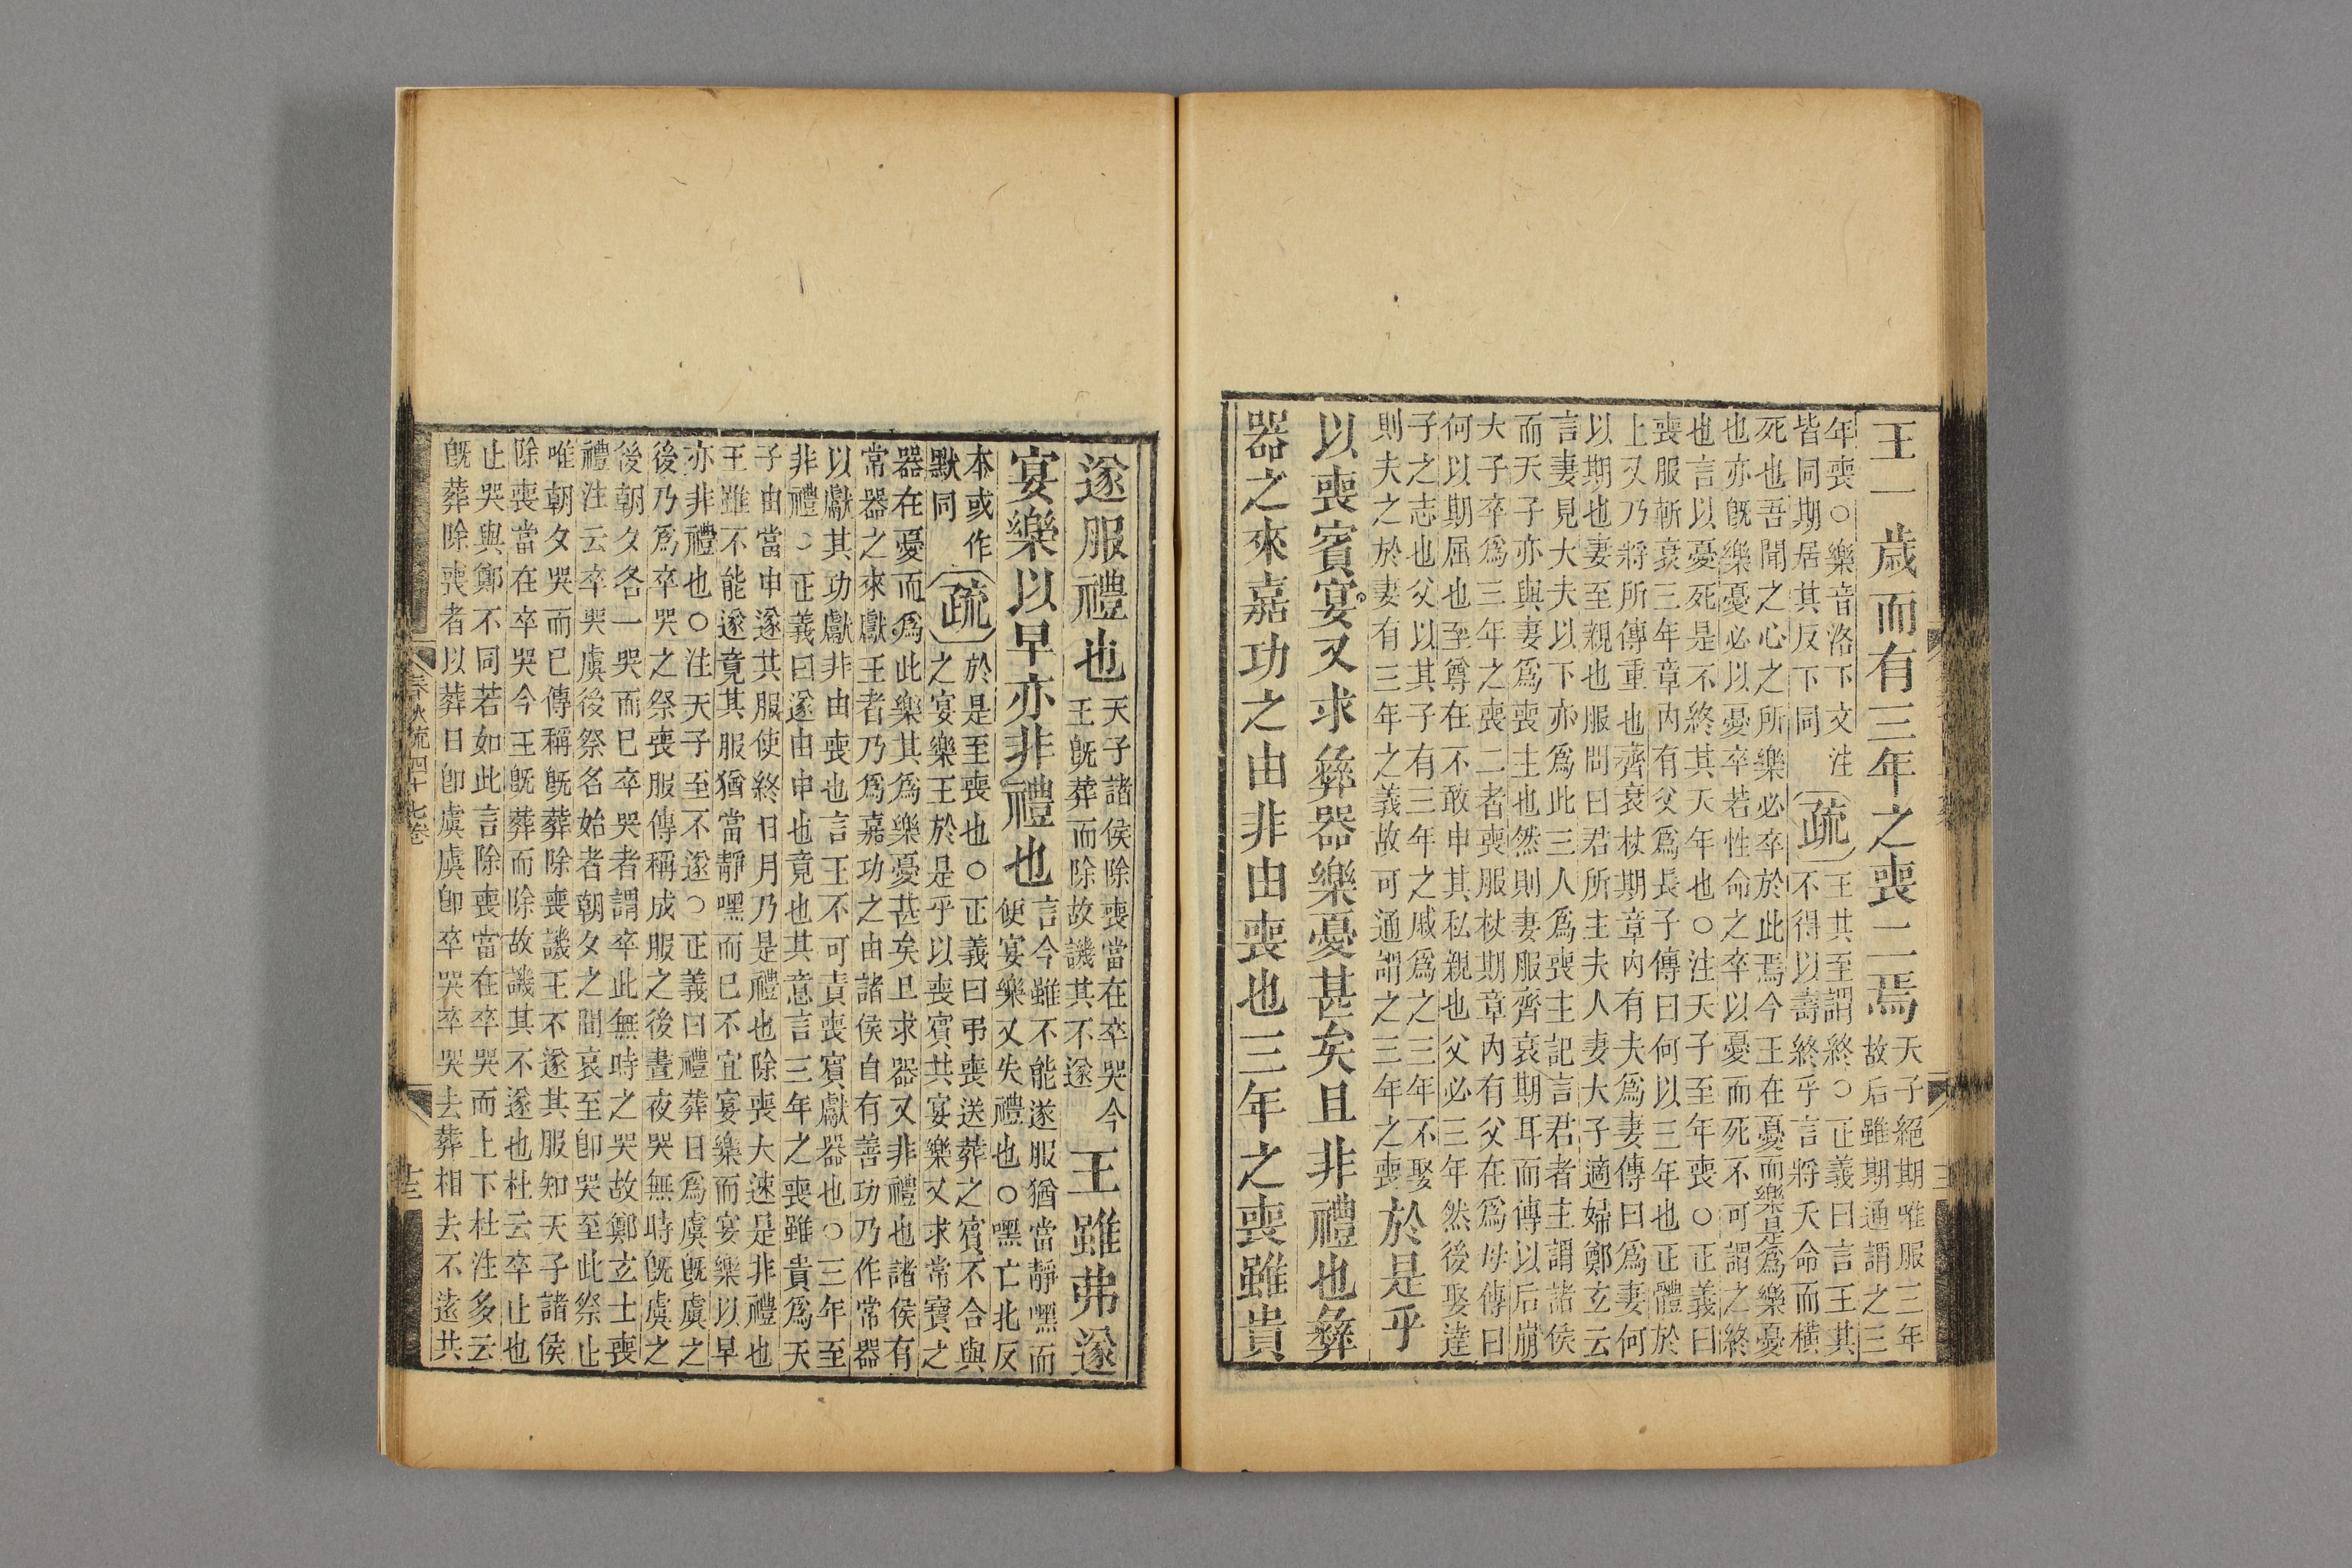 王一歲而有三年之喪二焉
天子絕期唯服三年
故后雖期通謂之三
年喪○樂音洛下文注
皆同期居其反下同
疏
王其至謂終○正義曰言王其
不得以壽終乎言將夭命而橫
死也吾聞之心之所樂必卒於此焉今王在憂而樂是爲樂憂
也亦旣樂憂必以憂卒若性命之卒以憂而死不可謂之終
也言以憂死是不終其天年也○注天子至年喪○正義曰
喪服斬衰三年章內有父爲長子傳曰何以三年也正體於
上又乃將所傳重也齊衰杖期章內有夫爲妻傳曰爲妻何
以期也妻至親也服問曰君所主夫人妻大子適婦鄭玄云
言妻見大夫以下亦爲此三人爲喪主記言君者主謂諸侯
而天子亦與妻爲喪主也然則妻服齊衰期耳而傳以后崩
大子卒爲三年之喪二者喪服杖期章內有父在爲母傳曰
何以期屈也至尊在不敢申其私親也父必三年然後娶達
子之志也父以其子有三年之戚爲之三年不娶
則夫之於妻有三年之義故可通謂之三年之喪
於是乎
以喪賓宴又求彝器樂憂甚矣且非禮也彝
器之來嘉功之由非由喪也三年之喪雖貴
遂服禮也
天子諸侯除喪當在卒哭今
王旣葬而除故譏其不遂
王雖弗遂
宴樂以早亦非禮也
言今雖不能遂服猶當靜嘿而
便宴樂又失禮也○嘿亡北反
本或作
默同
疏
於是至喪也○正義曰弔喪送葬之賓不合與
之宴樂王於是乎以喪賓共宴樂又求常寶之
器在憂而爲此樂其爲樂憂甚矣且求器又非禮也諸侯有
常器之來獻王者乃爲嘉功之由諸侯自有善功乃作常器
以獻其功獻非由喪也言王不可責喪賓獻器也○三年至
非禮○正義曰遂由申也竟也其意言三年之喪雖貴爲天
子由當申遂其服使終日月乃是禮也除喪大速是非禮也
王雖不能遂竟其服猶當靜嘿而已不宜宴樂而宴樂以早
亦非禮也○注天子至不遂○正義曰禮葬日爲虞旣虞之
後乃爲卒哭之祭喪服傳稱成服之後晝夜哭無時旣虞之
後朝夕各一哭而已卒哭者謂卒此無時之哭故鄭玄士喪
禮注云卒哭虞後祭名始者朝夕之間哀至卽哭至此祭止
唯朝夕哭而已傳稱旣葬除喪譏王不遂其服知天子諸侯
除喪當在卒哭今王旣葬而除故譏其不遂也杜云卒止也
止哭與鄭不同若如此言除喪當在卒哭而上下杜注多云
旣葬除喪者以葬日卽虞虞卽卒哭卒哭去葬相去不遠共
春秋疏四十七卷
十三